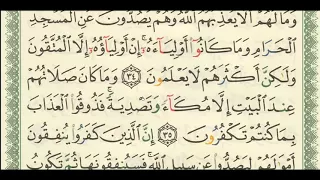 وَمَا لَهُمْ أَلَّا يُعَذِّبَهُمُ ٱللَّهُ وَهُمْ يَصُدُّونَ عَنِ ٱلْمَسْجِدِ
ٱلْحَرَامِ وَمَا كَانُوٓا۟ أَوْلِيَآءَهُۥٓ ۚ إِنْ أَوْلِيَآؤُهُۥٓ إِلَّا ٱلْمُتَّقُونَ
وَلَٰكِنَّ أَكْثَرَهُمْ لَا يَعْلَمُونَ ٣٤ وَمَا كَانَ صَلَاتُهُمْ
عِندَ ٱلْبَيْتِ إِلَّا مُكَآءً وَتَصْدِيَةً ۚ فَذُوقُوا۟ ٱلْعَذَابَ
بِمَا كُنتُمْ تَكْفُرُونَ ٣٥ إِنَّ ٱلَّذِينَ كَفَرُوا۟ يُنفِقُونَ
أَمْوَٰلَهُمْ لِيَصُدُّوا۟ عَن سَبِيلِ ٱللَّهِ ۚ فَسَيُنفِقُونَهَا ثُمَّ تَكُونُ